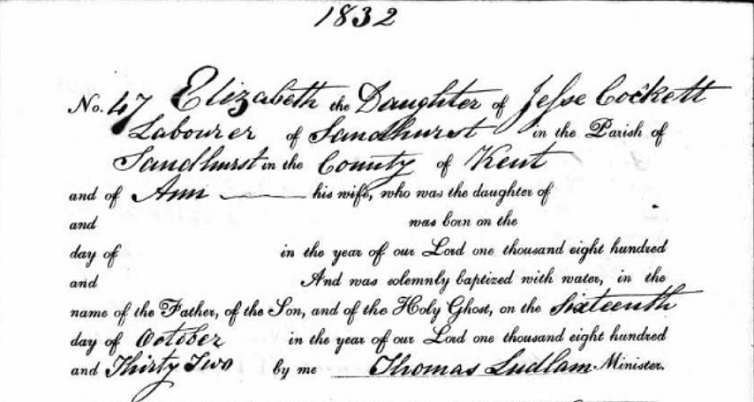 1832
No. 47 Elizabeth the Daughter of Jesse Cockett
Labourer of Sandhurst in the Parish of
Sandhurst in the County of Kent
and of Ann his wife, who was the daughter of
and was born on the
day of in the year of our Lord one thousand eight hundred
and And was solemnly baptized with water, in the
name of the Father, of the Son, and of the Holy Ghost, on the Sixteenth
day of October in the year of our Lord one thousand eight hundred
and Thirty Two by me Thomas Ludlam Minister.